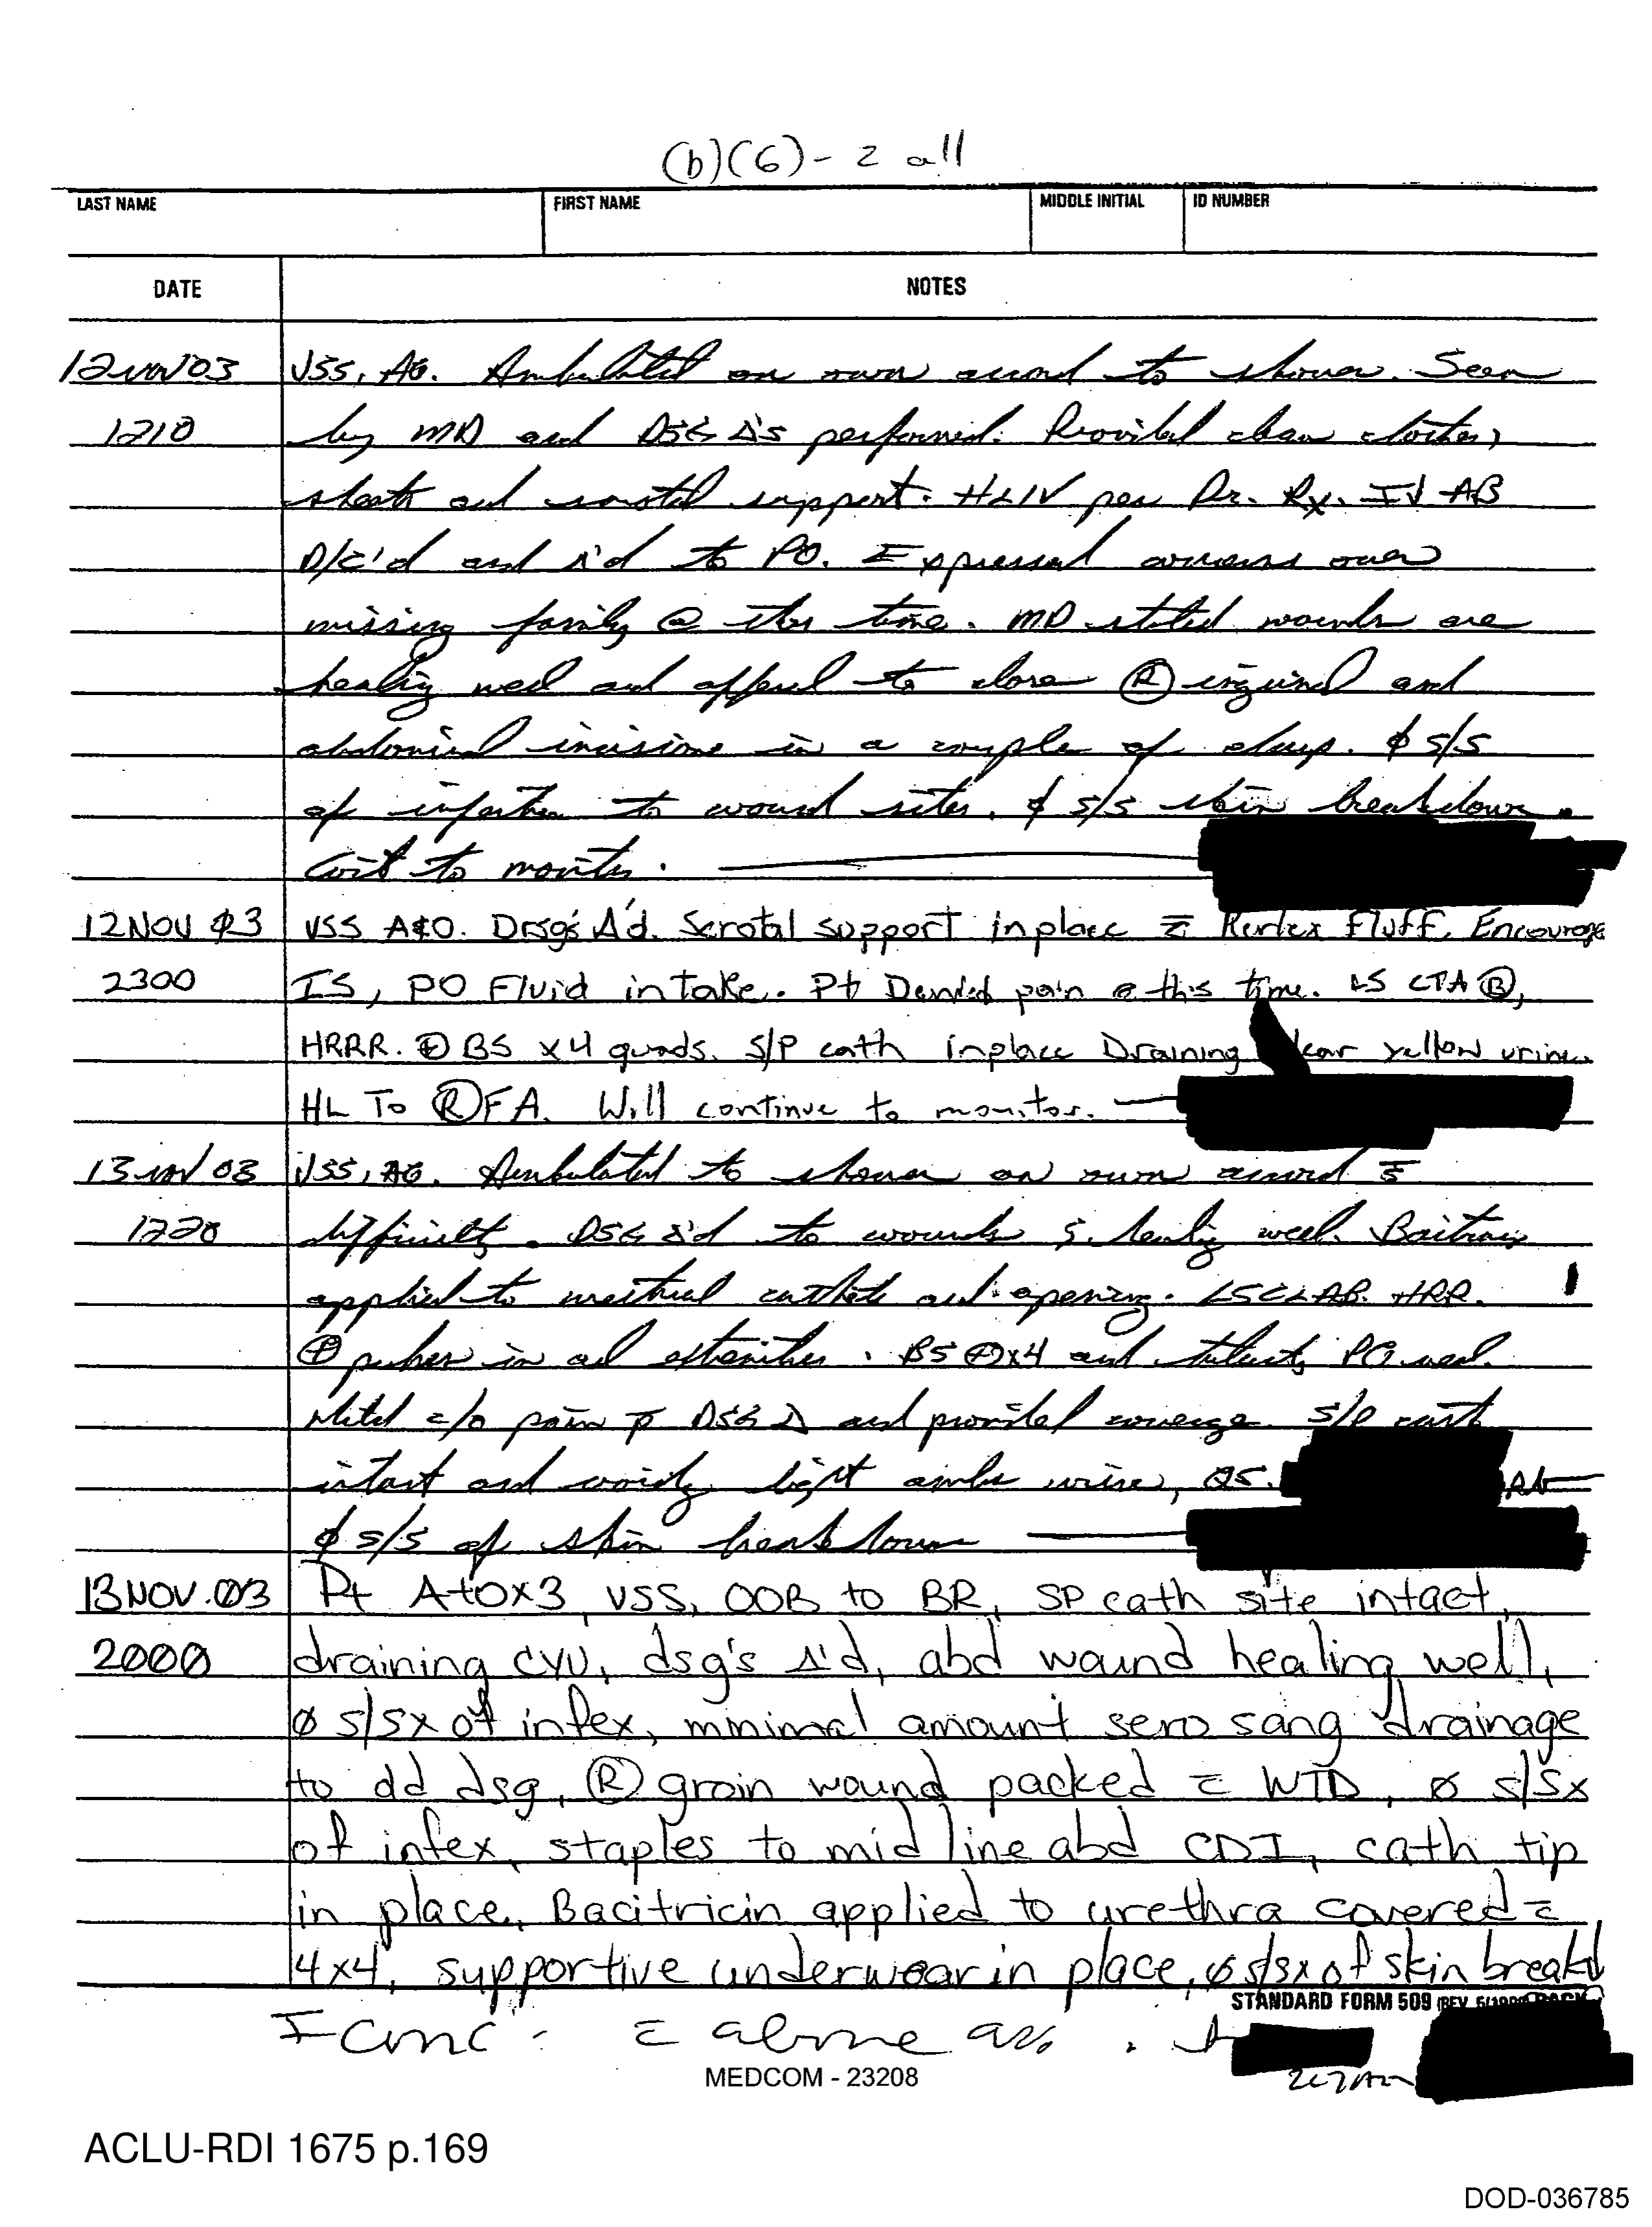 (b)(6)-2 all
LAST NAME FIRST NAME MIDDLE INITIAL ID NUMBER
DATE NOTES
12 NOV 03 VSS, AO. Ambulated on own accord to shower. Seen
1210 by MD and DSG Δ's performed. Provided clean clothes,
sheets and support. HLIV per Dr. Rx. IV AB
D/C'd and Δ'd to PO. Expressed concerns over
missing family @ this time. MD stated wounds are
healing well and to close Ⓡ inguinal and
abdominal incisions in a couple of days. ø S/S
of infection to wound sites. ø S/S skin breakdown.
Cont to monitor.
12 NOV 03 VSS A&O. Drsg's Δ'd. Scrotal support in place c̄ Kerlex Fluff. Encourage
2300 IS, PO Fluid intake. Pt Denied pain @ this time. LS CTA Ⓑ,
HRRR. ⊕ BS x4 quads. S/P cath inplace Draining clear yellow urine.
HL To Ⓡ FA. Will continue to monitor.
13 NOV 03 VSS, AO. Ambulated to shower on own accord s̄
1220 difficulty. DSG Δ'd to wounds healing well.
applied to catheter and opening. HRR.
⊕ pulses in all extremities. BS ⊕x4 and PO well.
c/o pain p̄ DSG Δ and provided coverage. S/P cath
intact and voiding light amber urine, QS. RN
ø S/S of skin breakdown
13 NOV. 03 Pt A+Ox3, VSS, OOB to BR, SP cath site intact,
2000 draining CYU, dsg's Δ'd, abd wound healing well,
ø s/sx of infex, minimal amount sero sang drainage
to dd dsg, Ⓡ groin wound packed c̄ WTD, ø s/sx
of infex, staples to midline abd CDI, cath tip
in place, Bacitricin applied to urethra covered c̄
4x4, supportive underwear in place, ø s/sx of skin breakd
STANDARD FORM 509 (REV. 5/1999) BACK
I c̄ above
MEDCOM - 23208
ACLU-RDI 1675 p.169
DOD-036785